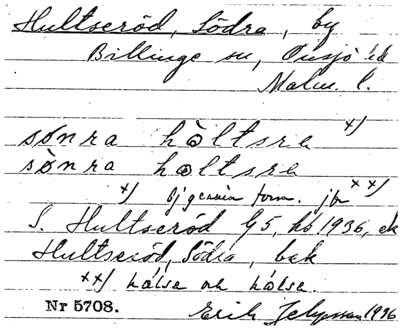 Hultseröd, Södra, by
Billinge sn, Onsjö hd
Malm. l.
sønra hòltsra x)
sønra hòltsre
x) ej genuin form. jfr xx)
S. Hultseröd G5, kb 1936, ek
Hultseröd, Södra, bek
xx) hålsa och hålse.
Nr 5708.
Erik 1936